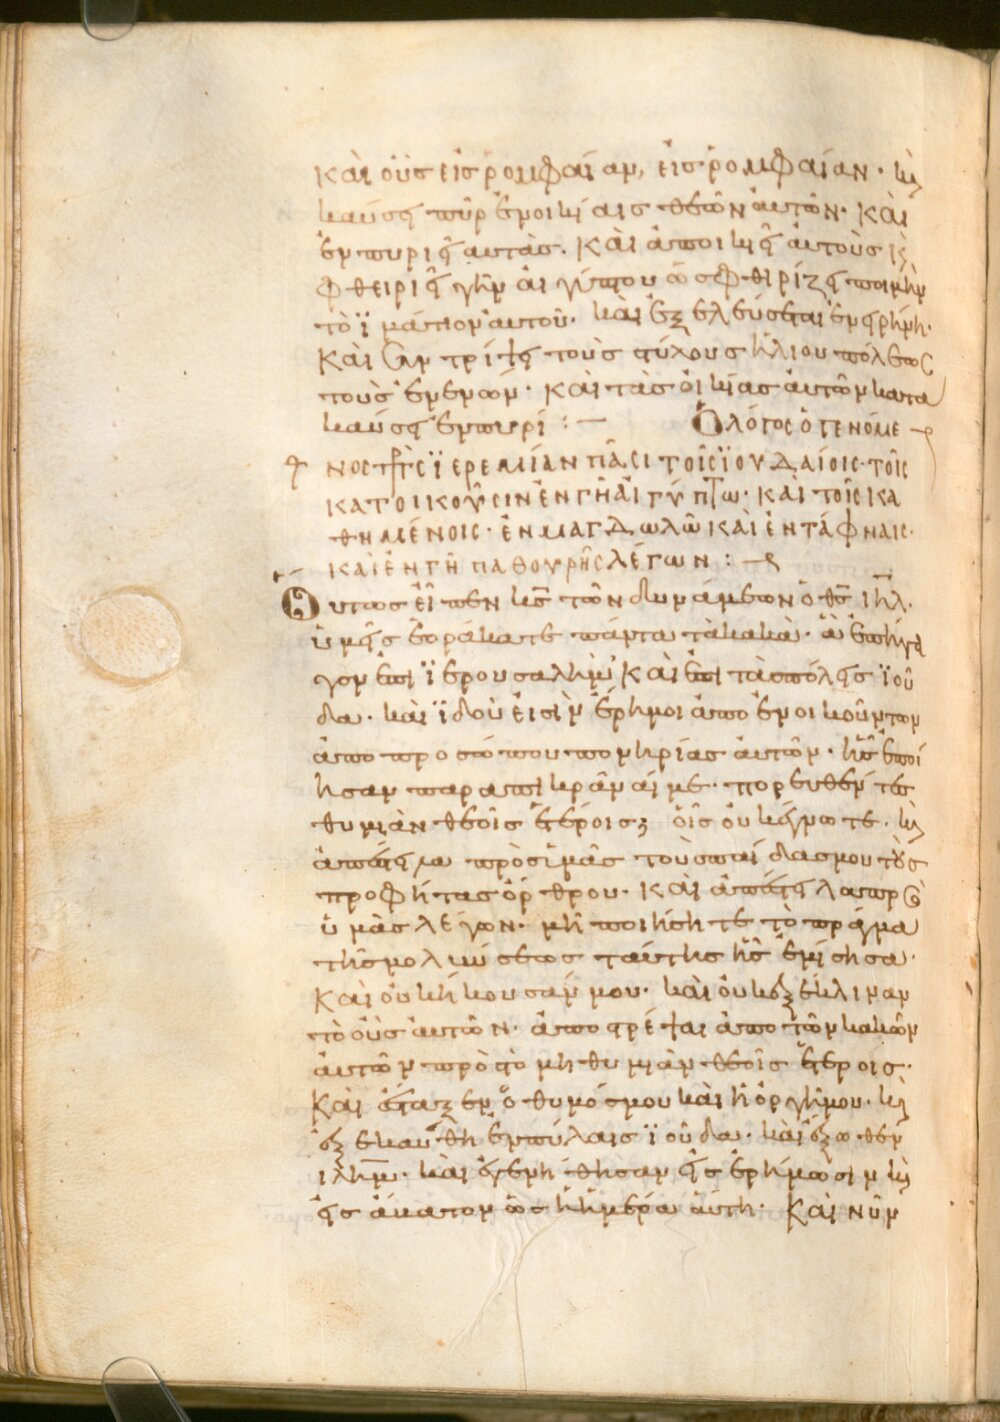 καὶ οὓς εἰς ῥομφαίαν, εἰς ῥομφαίαν· κ̀
καύσει πῦρ ἐν οἰκίαις θεῶν αὐτῶν· καὶ
ἐμπυριεῖ αὐτὰς. καὶ ἀποικιεῖ αὐτοὺς κ̀
φθειριεῖ γῆν αἰγύπτου ὡς φθιρίζει ποιμὴν
τὸ ϊμάτιον αὐτοῦ· καὶ ἐξελεύσεται ἐν εἰρήνη·
Καὶ συντρίψει τοὺς στύλους ἡλίου πόλεως
τοὺς ἐν ἐνών· καὶ τὰς οἰκίας αὐτῶν κατα
καύσει ἐν πυρί :— Ὁ λόγος ὁ γενόμε
νος πρὸς ϊερεμίαν πᾶσι τοῖς ϊουδαίοις· τοῖς
κατοικοῦσιν ἐν γῆ αἰγύπτω· καὶ τοῖς κα
θημένοις· ἐν μαγδωλῶ καὶ ἐν τάφναις·
καὶ ἐν γῆ παθουρῆς λέγων :
Οὕτως εἶπεν κ̅ς̅ τῶν δυνάμεων ὁ θ̅ς̅ ι̅η̅λ̅·
ὑμεῖς ἑοράκατε πάντα τὰ κακὰ· ἃ ἐπήγα
γον ἐπὶ ϊερουσαλὴμ καὶ ἐπὶ τὰς πόλεις ϊού
δα· καὶ ϊδοὺ εἰσὶν ἔρημοι ἀπο ἐνοικούντων
ἀπο προσώπου πονηρίας αὐτῶν· ἧς ἐποί
ησαν παραπικρᾶναί με· πορευθέντες
θυμιᾶν θεοῖς ἑτέροις; οἷς οὐκ ἔγνωτε· κ̀
ἀπέστειλα πρὸς ὑμᾶς τοὺς παίδας μου τοὺς
προφήτας ὄρθρου· καὶ ἀπέστειλα πρὸς
ὑμὰς λέγων· μὴ ποιήσητε τὸ πράγμα
τῆς μολύνσεως ταύτης ἧς ἐμίσησα·
Καὶ οὐκ ἤκουσάν μου· καὶ οὐκ ἐξέκλιναν
τὸ οὖς αὐτῶν· ἀποστρέψαι ἀπο τῶν κακῶν
αὐτῶν πρὸς τὸ μὴ θυμιὰν θεοῖς ἑτέροις·
Καὶ ἔσταξεν ὁ θυμός μου καὶ ἡ ὀργή μου· κ̀
ἐξεκαύθη ἐν πύλαις ϊούδα· καὶ ἔξωθεν
ι̅λ̅η̅μ̅· καὶ ἐγενήθησαν εἰς ἐρήμωσιν κ̀
εἰς ἄβατον ὡς ἡ ἡμέρα αὕτη· Καὶ νῦν